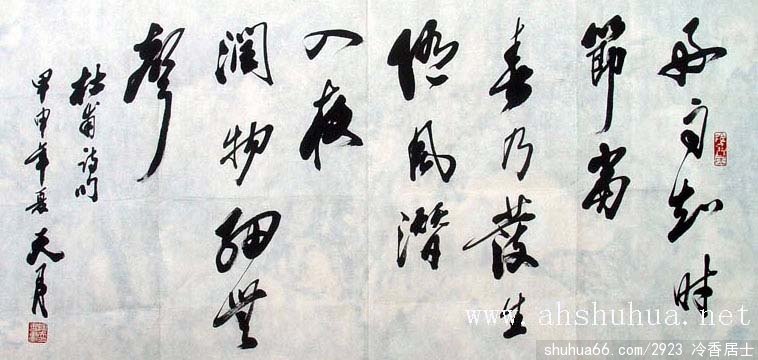 好雨知時
節當
春乃發生
随風潛
入夜
潤物細無
聲
杜甫詩句
甲申年夏天月
www.ahshuhua.net
shuhua66.com/2923 冷香居士